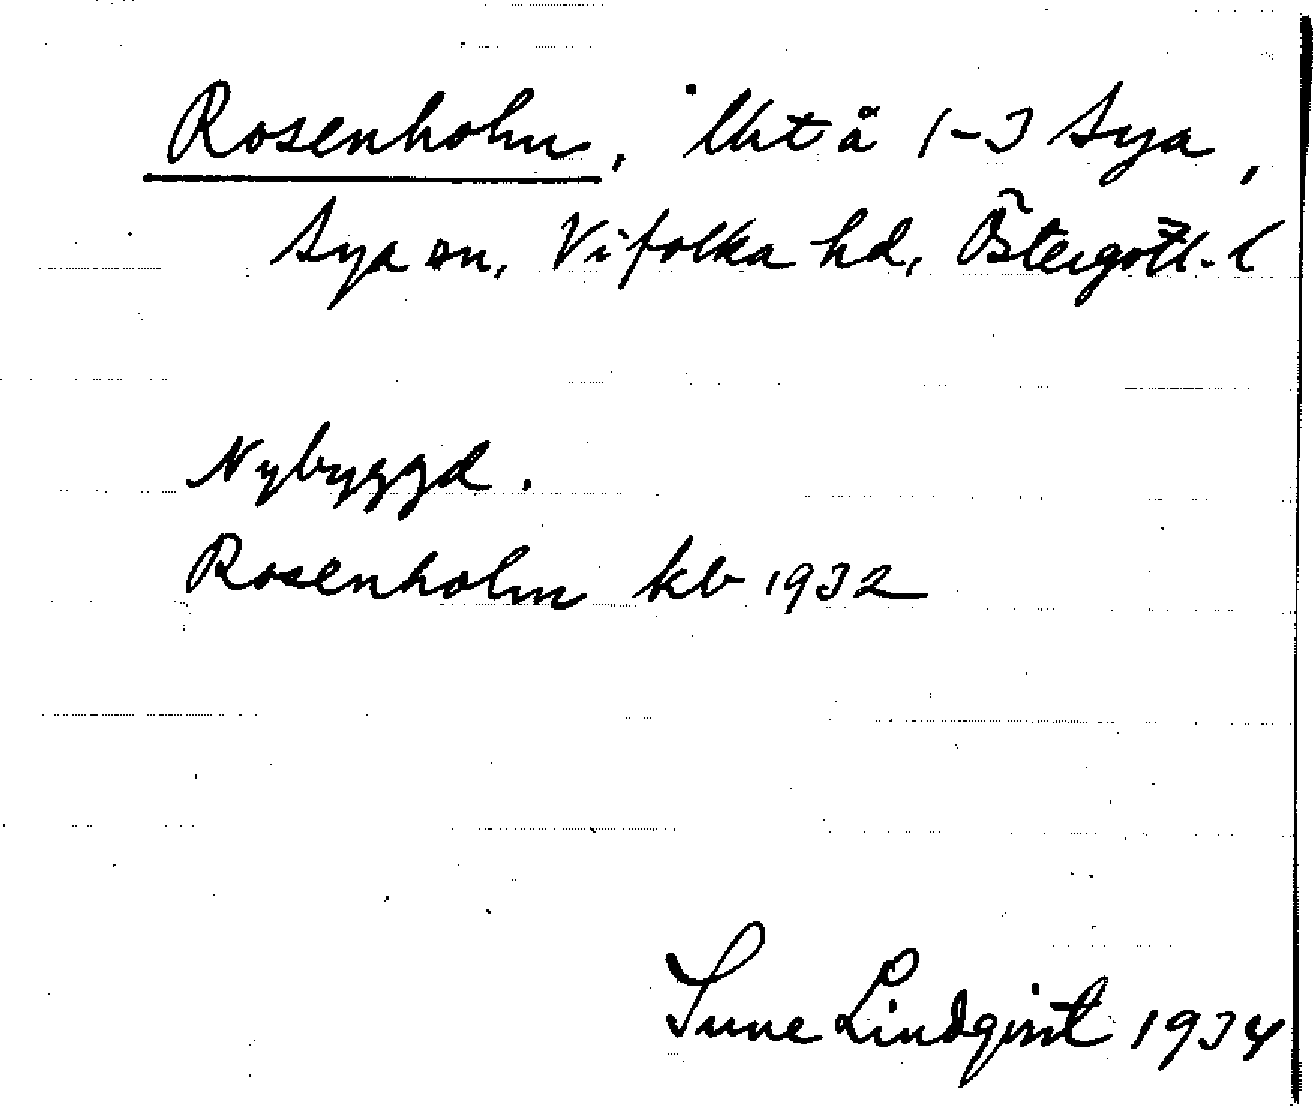 Rosenholm, lht å 1-3 Sya,
Sya sn, Vifolka hd, Östergötl. l
Nybyggd.
Rosenholm kb 1932
Sune Lindqvist 1934